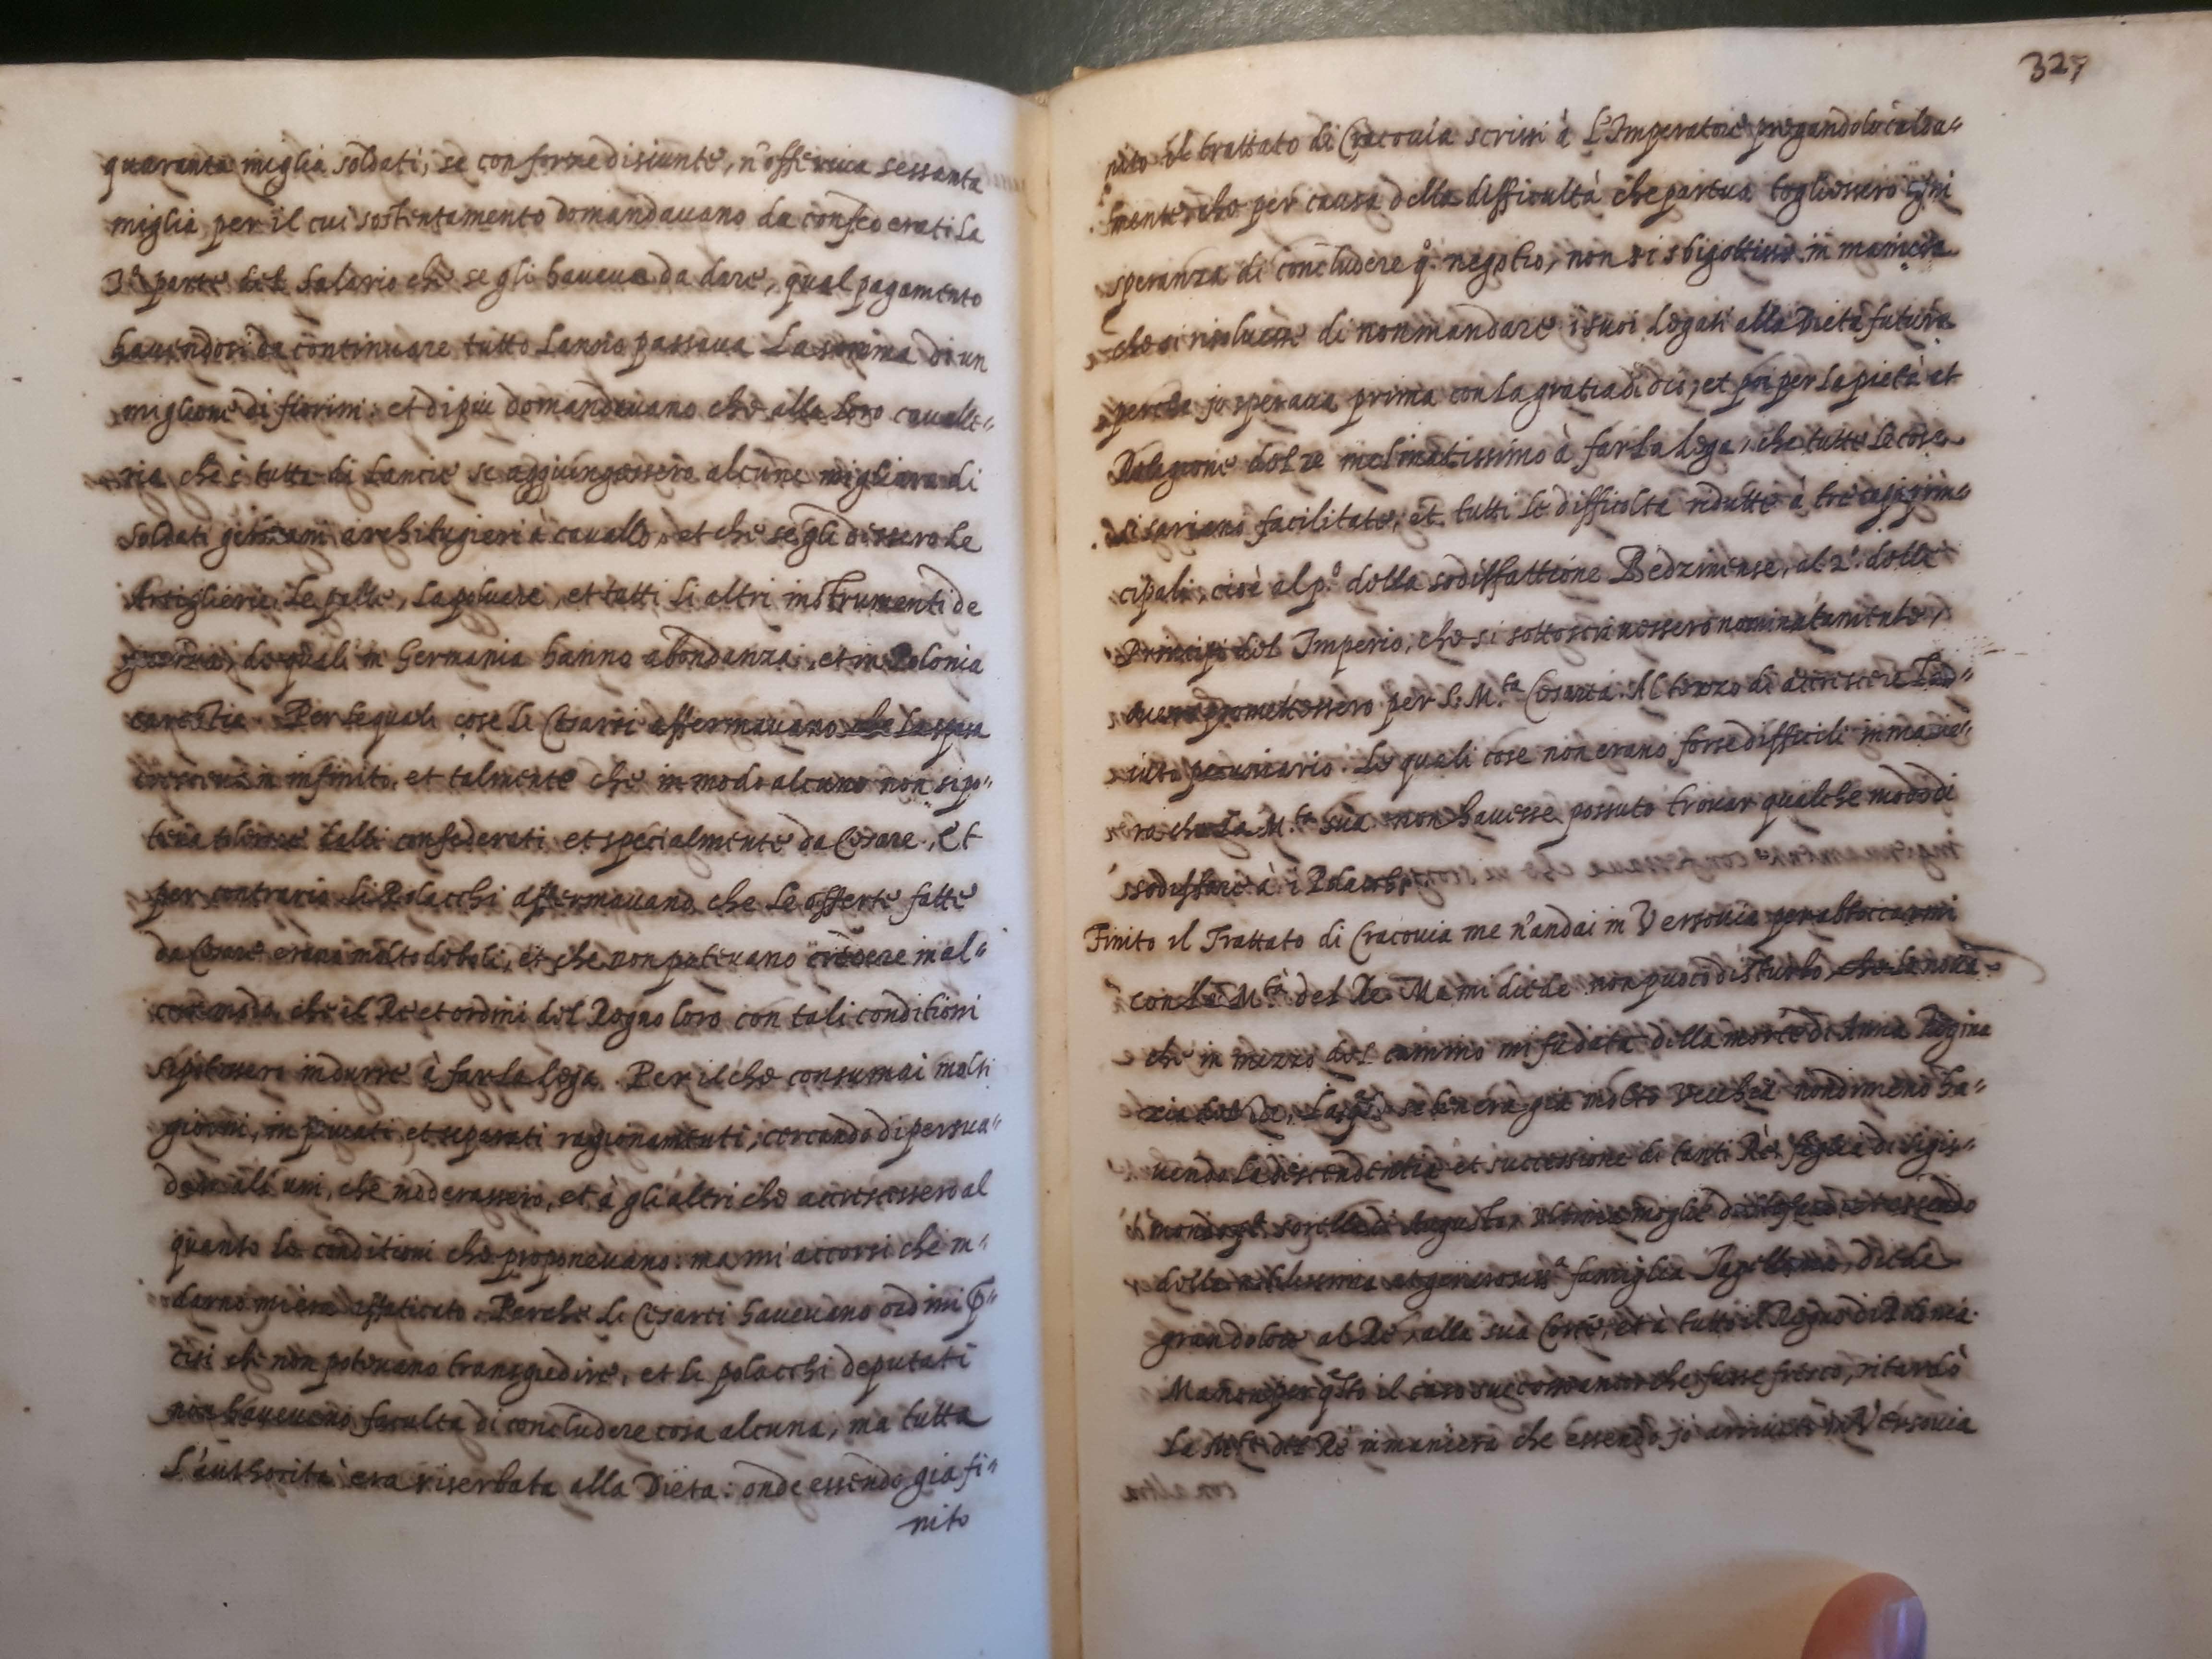 quaranta miglia soldati, se con forze disiunte, n'offeriva sessanta
miglia per il cui sostentamento domandavano da confederati la
3ª parte del salario che se gli haveva da dare, qual pagamento
havendosi da continuare tutto l'anno passava la somma di un
miglione di fiorini: et di più domandavano che alla loro cavalle-
ria che è tutta di Lancie se aggiungessero alcune migliara di
soldati germani archibugieri à cavallo, et che se gli dessero le
Artiglierie, le palle, la polvere, et tutti li altri instrumenti de
guerra, de quali in Germania hanno abondanza, et in Polonia
carestia. Per le quali cose li Cesarei affermavano che la spesa
cresceva in infinito, et talmente che in modo alcuno non si po-
teva tolerare dalli confederati, et specialmente da Cesare, Et
per contrario li Polacchi affermavano che le offerte fatte
da Cesare erano molto deboli, et che non potevano credere in al-
cun modo, che il Re et ordini del Regno loro con tali conditioni
si potessero indurre à far la lega. Per il che consumai molti
giorni, in privati et separati ragionamenti, cercando di persua-
dere alli uni, che moderassero, et à gli altri che accrescessero al
quanto le conditioni che proponevano: ma mi accorsi che in-
darno mi era affaticato. Perche li Cesarei havevano ordini p-
cisi che non potevano transgredire, et li polacchi deputati
non havevano facultà di concludere cosa alcuna, ma tutta
L'authorità era riserbata alla Dieta: onde essendo già fi-
nito
327
nito il trattato di Cracovia scrissi à L'Imperatore pregandolo calda-
mente che per causa della difficultà che pareva togliessero ogni
speranza di concludere q.º negotio, non si sbigottisse in maniera
che si risolvesse di non mandare i suoi Legati alla Dieta futura
perche io sperava prima con la gratia di dio, et poi per la pietà et
Religione del Re inclinatissimo à far la lega, che tutte le cose
si sariano facilitate, et tutti le difficoltà ridutte à tre capi prin-
cipali, cioè al p.º della sodisfattione Bedzinense, al 2.º delli
Principi del Imperio, che si sottoscrivessero nominatamente,
overo promettessero per S. M.ta Cesarea. Al terzo di accrescere l'ad-
iuto pecuniario. Le quali cose non erano forse difficili in manie-
ra che la M.ta sua non havesse possuto trovar qualche modo di
sodisfare à i Polacchi.
Finito il Trattato di Cracovia me n'andai in Versovia per abboccarmi
con la M.tà del Re. Ma mi diede non puoco disturbo, che la nova
che in mezzo del camino mi fù data della morte di Anna Regina
zia del Re, la q.le se ben era già molto vecchia nondimeno ha-
vendo la descendentia et successione di tanti Rè figlia di Sigis-
mondo p.º, sorella di Augusto, ultima moglie di Stefano, et essendo
della nobilissima et generosiss.ª famiglia Jagellona, diede
gran dolore al Re, alla sua Corte, et à tutto il Regno di Polonia.
Ma non per q.sto il caso successo ancor che fusse fresco, ritardò
la M.tà del Rè in maniera che essendo io arrivato in Versovia
con altra